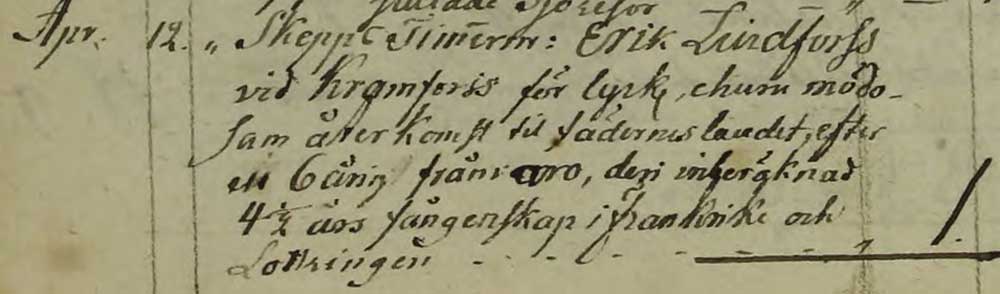 Apr. 12. „ Skepps Timerm: Erik Lindforss
vid Kramforss för lyckl, ehuru mödo-
sam återkomst til fäderneslandet, efter
en 6 årig frånvaro, deri inberäknad
4 1/2 års fångenskap i frankrike och
Lottringen - - - - - „ 1.